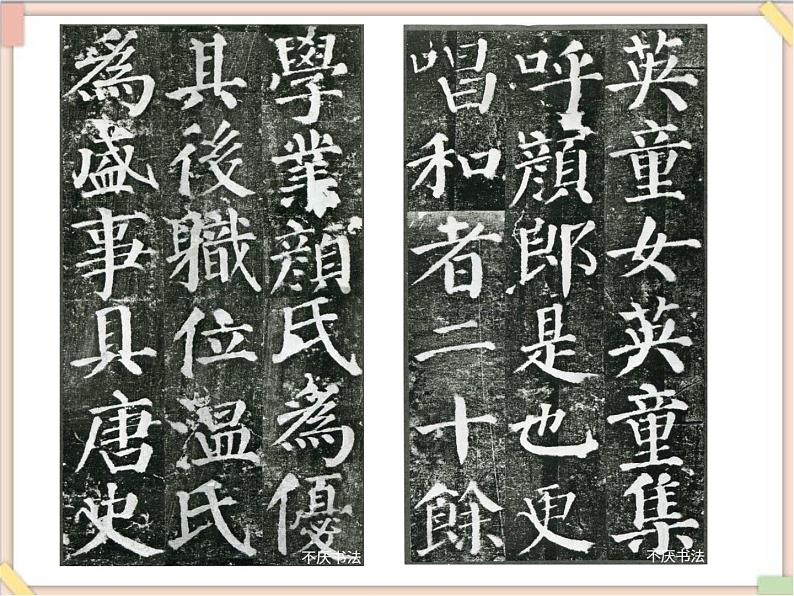 英童女英童集
呼顔郎是也更
唱和者二十餘
不厌书法
學業顔氏為優
其後職位溫氏
為盛事具唐史
不厌书法